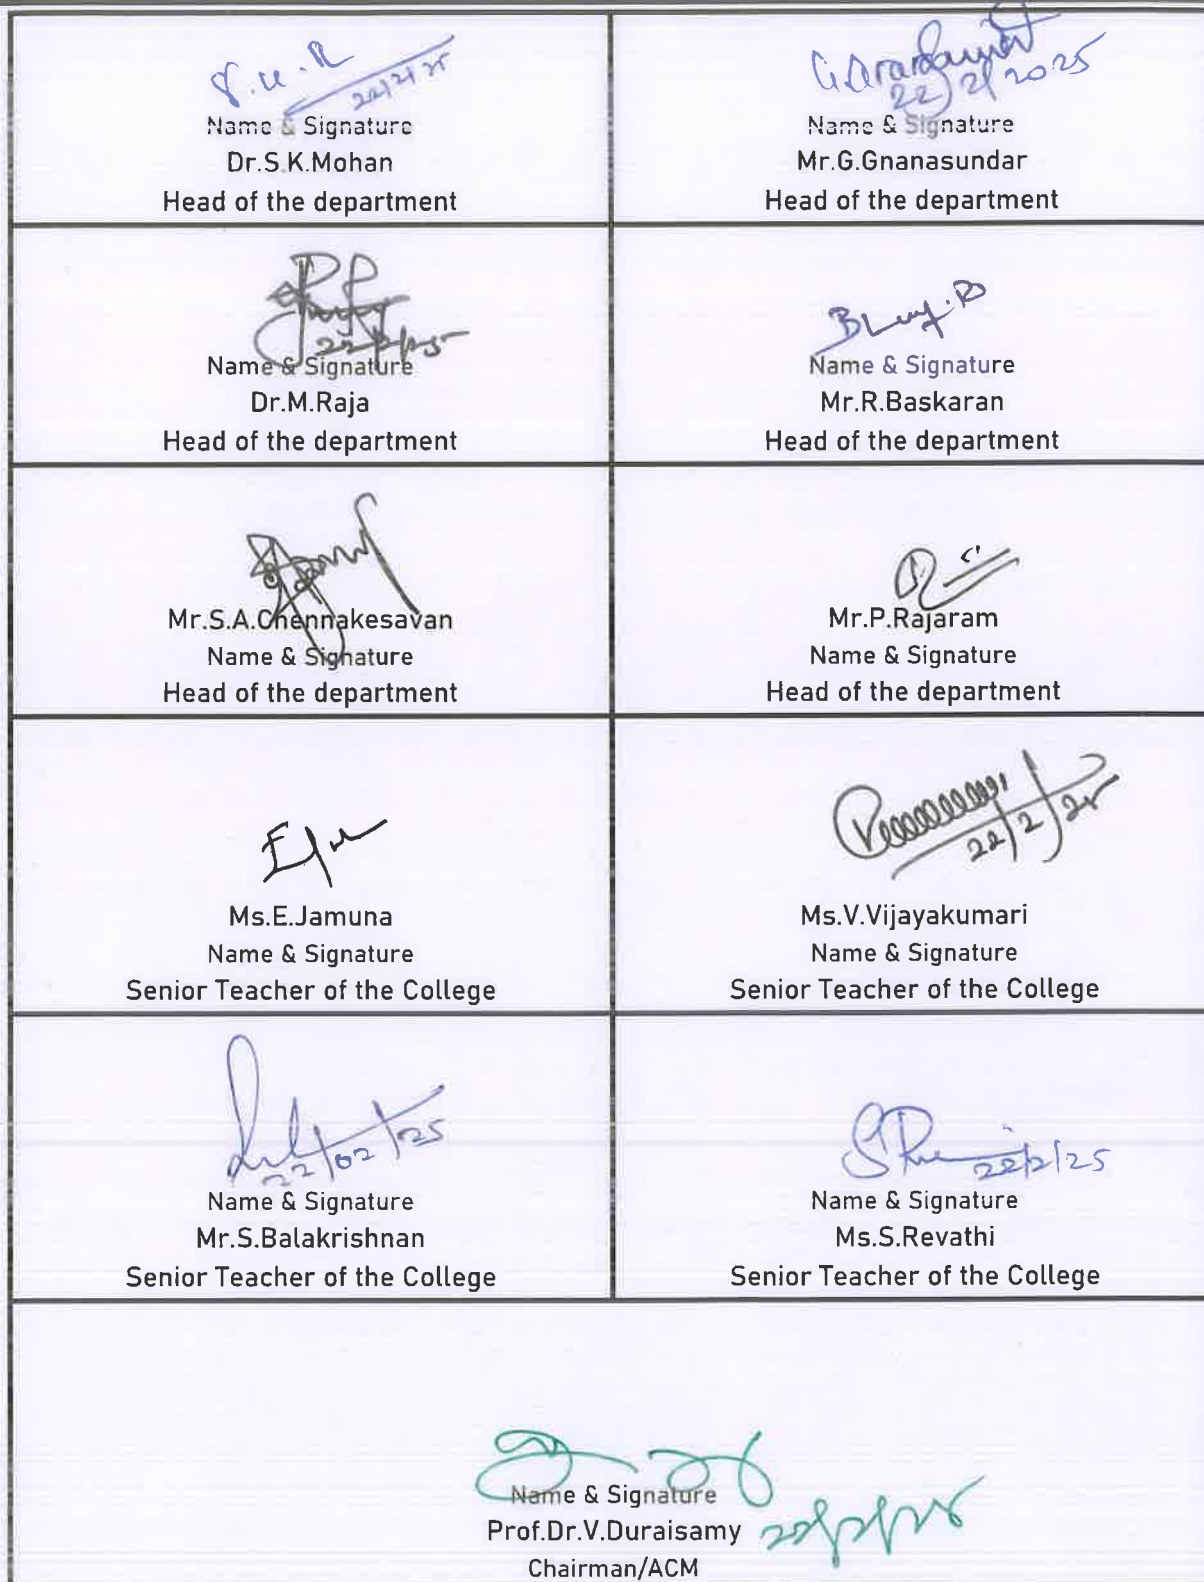 22/2/25
Name & Signature
Dr.S.K.Mohan
Head of the department
22/2/2025
Name & Signature
Mr.G.Gnanasundar
Head of the department
22/2/25
Name & Signature
Dr.M.Raja
Head of the department
Name & Signature
Mr.R.Baskaran
Head of the department
Mr.S.A.Chennakesavan
Name & Signature
Head of the department
Mr.P.Rajaram
Name & Signature
Head of the department
Ms.E.Jamuna
Name & Signature
Senior Teacher of the College
22/2/25
Ms.V.Vijayakumari
Name & Signature
Senior Teacher of the College
22/02/25
Name & Signature
Mr.S.Balakrishnan
Senior Teacher of the College
22/2/25
Name & Signature
Ms.S.Revathi
Senior Teacher of the College
Name & Signature
Prof.Dr.V.Duraisamy
Chairman/ACM